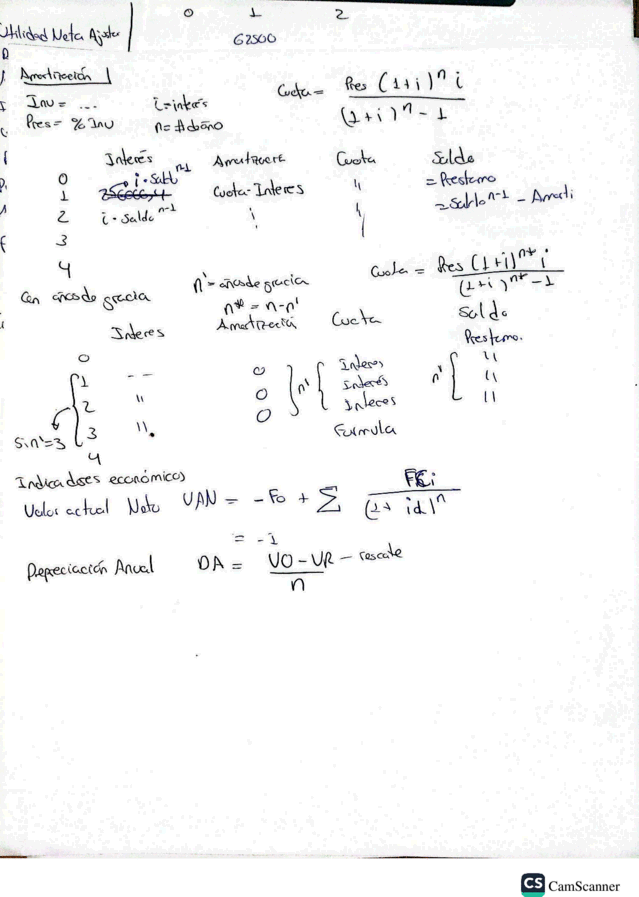 0 1 2
Utilidad Neta Ajustar 62500
Amortización
Inv = ... i = interés
Pres = % Inv n = # de año
Cuota = Pres (1+i)^n i / (1+i)^n - 1
Interés Cuota Saldo
0 = Prestamo
1 i · Sald^n-1 Cuota - Interes " = Saldo^n-1 - Amorti
2 i · Saldo^n-1
3
4
Con años de gracia n' = años de gracia
n* = n - n'
Cuota = Pres (1+i)^n* i / (1+i)^n* - 1
Interes Amortización Cuota Saldo
0 Prestamo.
1 -- 0 Interes "
2 " 0 n' Interés n' "
3 " 0 Interes "
4 Formula
Si n'=3
Indicadores económicos
Valor actual Neto VAN = - Fo + Σ FCi / (1 + id)^n
= -1
Depreciación Anual DA = VO - VR - rescate / n
CS CamScanner